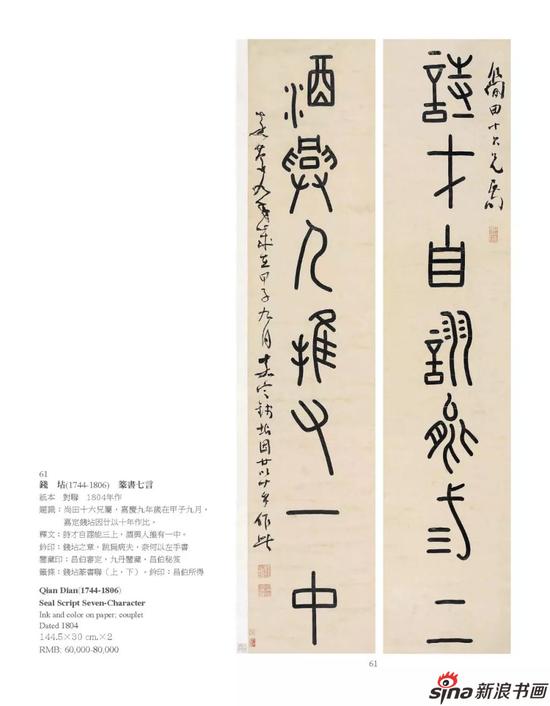 尚田十六兄屬
詩才自詡能三上
酒興人推有一中
嘉慶九年歲在甲子九月嘉定錢坫因廿以十年作此
61
錢 坫(1744-1806) 篆書七言
紙本 對聯 1804年作
題識:尚田十六兄屬,嘉慶九年歲在甲子九月,
嘉定錢坫因廿以十年作比。
釋文:詩才自詡能三上,酒興人推有一中。
鈐印:錢坫之章、病夫、奈何以左手書
鑒藏印:昌伯審定、九丹鑒藏、昌伯秘笈
籤條:錢坫篆書聯(上、下)。鈐印:昌伯所得
Qian Dian(1744-1806)
Seal Script Seven-Character
Ink and color on paper; couplet
Dated 1804
144.5×30 cm.×2
RMB: 60,000-80,000
61
sina新浪书画